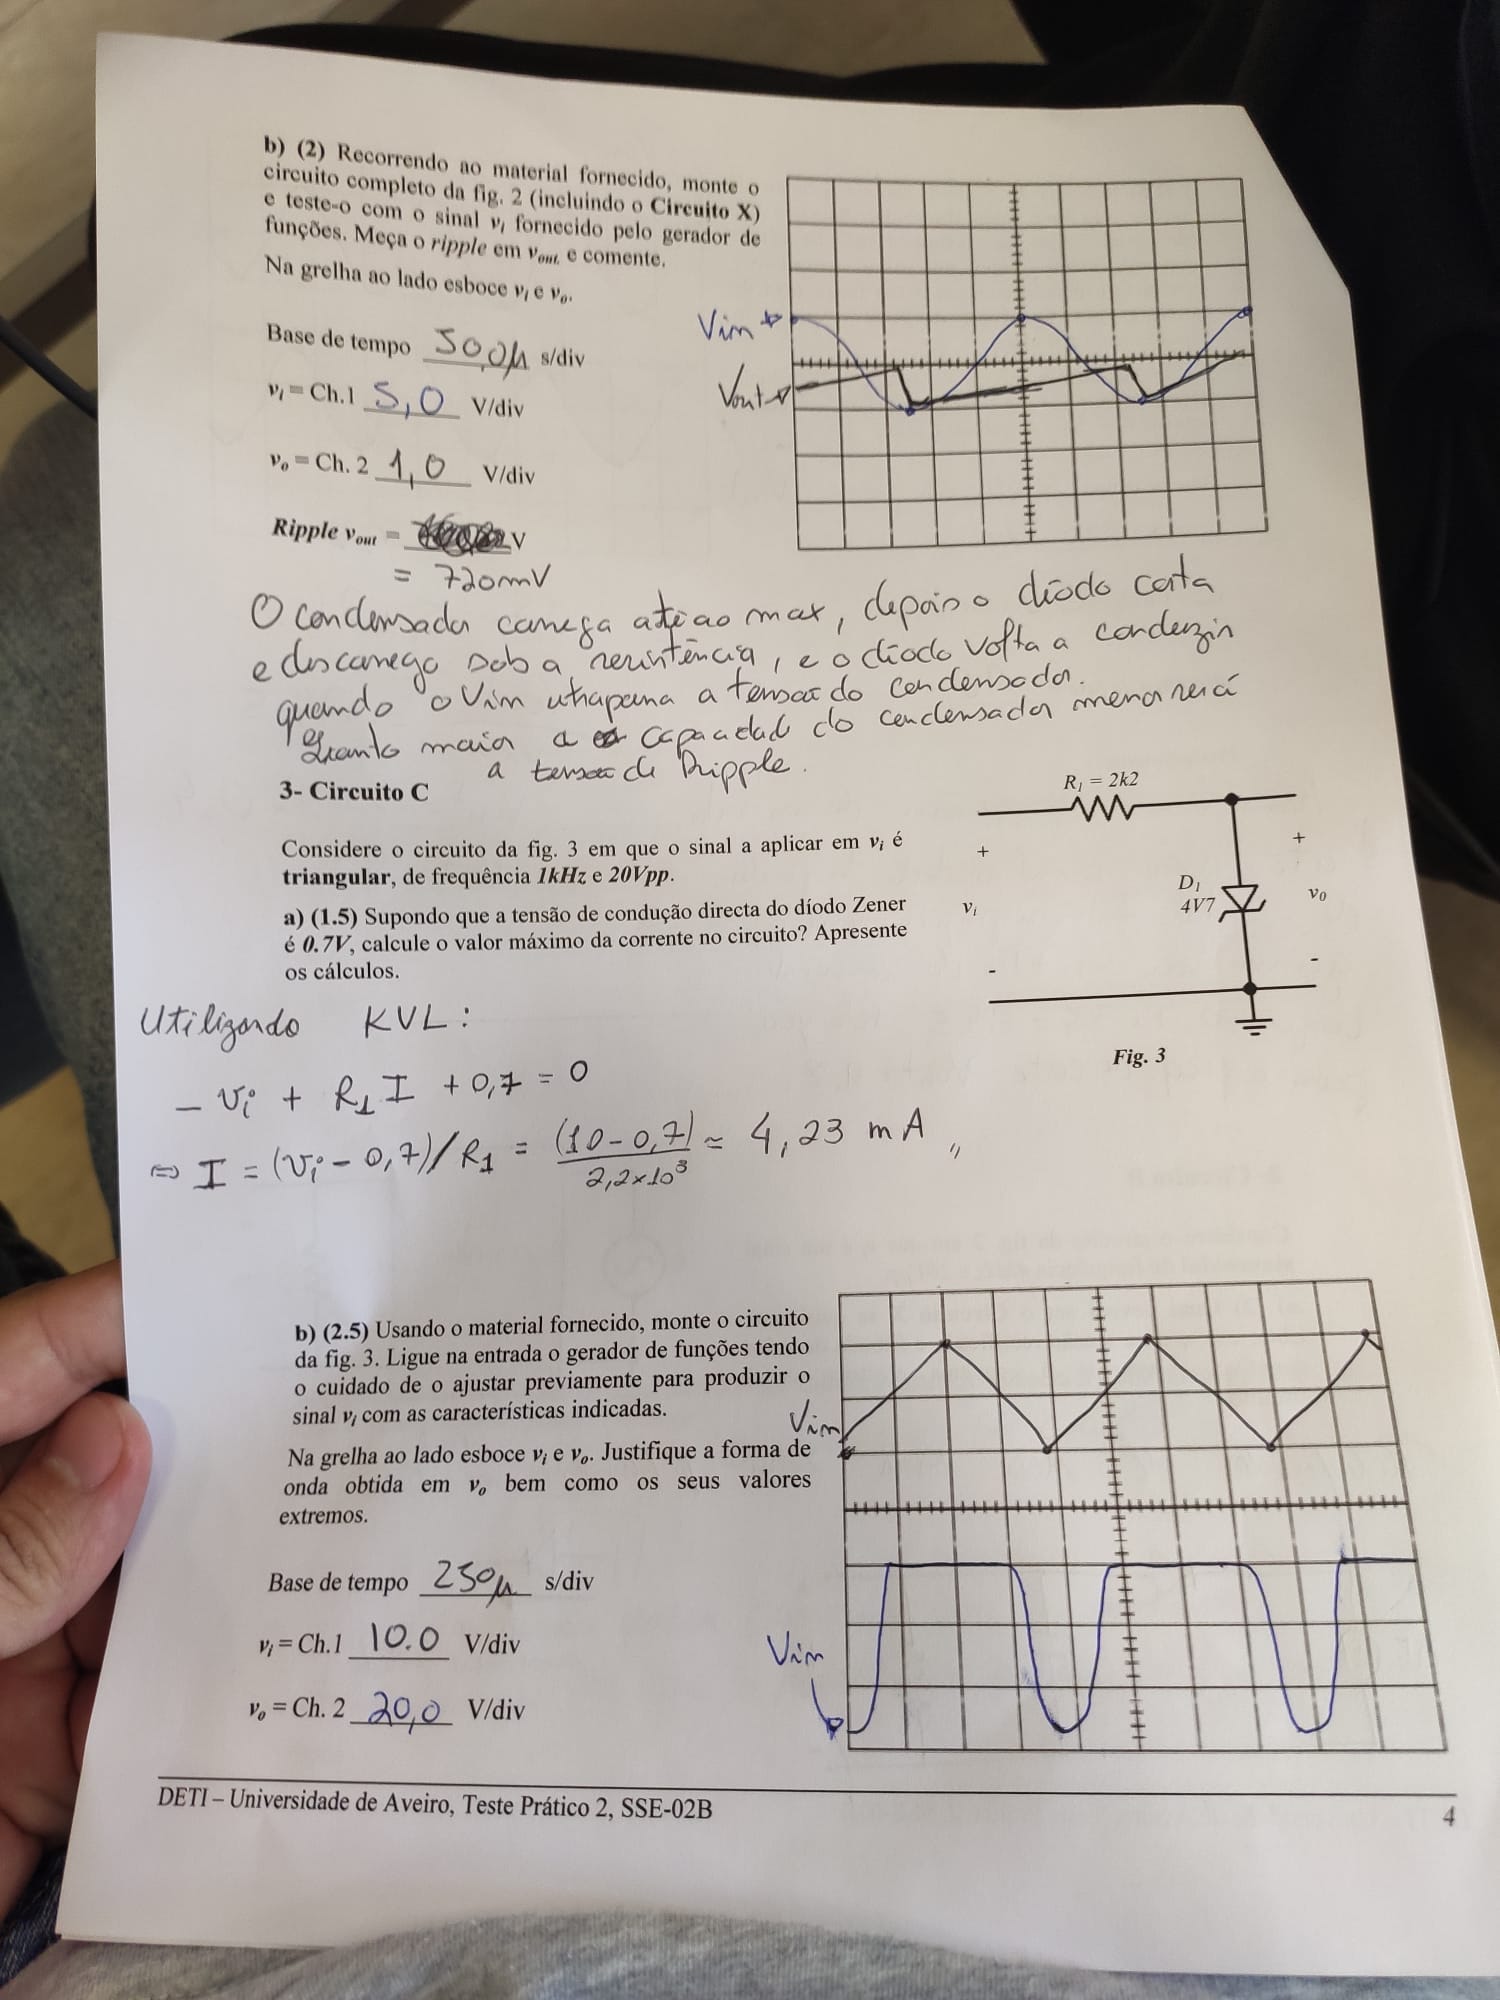 b) (2) Recorrendo ao material fornecido, monte o
circuito completo da fig. 2 (incluindo o Circuito X)
e teste-o com o sinal vi fornecido pelo gerador de
funções. Meça o ripple em vout. e comente.
Na grelha ao lado esboce vi e vo.
Vin
Vout
Base de tempo 500μ s/div
vi = Ch.1 5,0 V/div
vo = Ch. 2 1,0 V/div
Ripple vout = V
= 720mV
O condensador carrega até ao max, depois o díodo corta
e descarrega sob a resistência, e o díodo volta a conduzir
quando o Vin ultrapassa a tensão do condensador.
Quanto maior a capacidade do condensador menor será
a tensão de Ripple.
3- Circuito C
R1 = 2k2
Considere o circuito da fig. 3 em que o sinal a aplicar em vi é
triangular, de frequência 1kHz e 20Vpp.
a) (1.5) Supondo que a tensão de condução directa do díodo Zener
é 0.7V, calcule o valor máximo da corrente no circuito? Apresente
os cálculos.
+
+
D1
4V7
vi
v0
-
-
Fig. 3
Utilizando KVL:
- vi + R1 I + 0,7 = 0
⇔ I = (vi - 0,7)/R1 = (10-0,7)/2,2×10³ ≃ 4,23 mA,,
b) (2.5) Usando o material fornecido, monte o circuito
da fig. 3. Ligue na entrada o gerador de funções tendo
o cuidado de o ajustar previamente para produzir o
sinal vi com as características indicadas.
Na grelha ao lado esboce vi e vo. Justifique a forma de
onda obtida em vo bem como os seus valores
extremos.
Vin
Base de tempo 250μ s/div
vi = Ch.1 10.0 V/div
vo = Ch. 2 20,0 V/div
Vin
DETI – Universidade de Aveiro, Teste Prático 2, SSE-02B
4